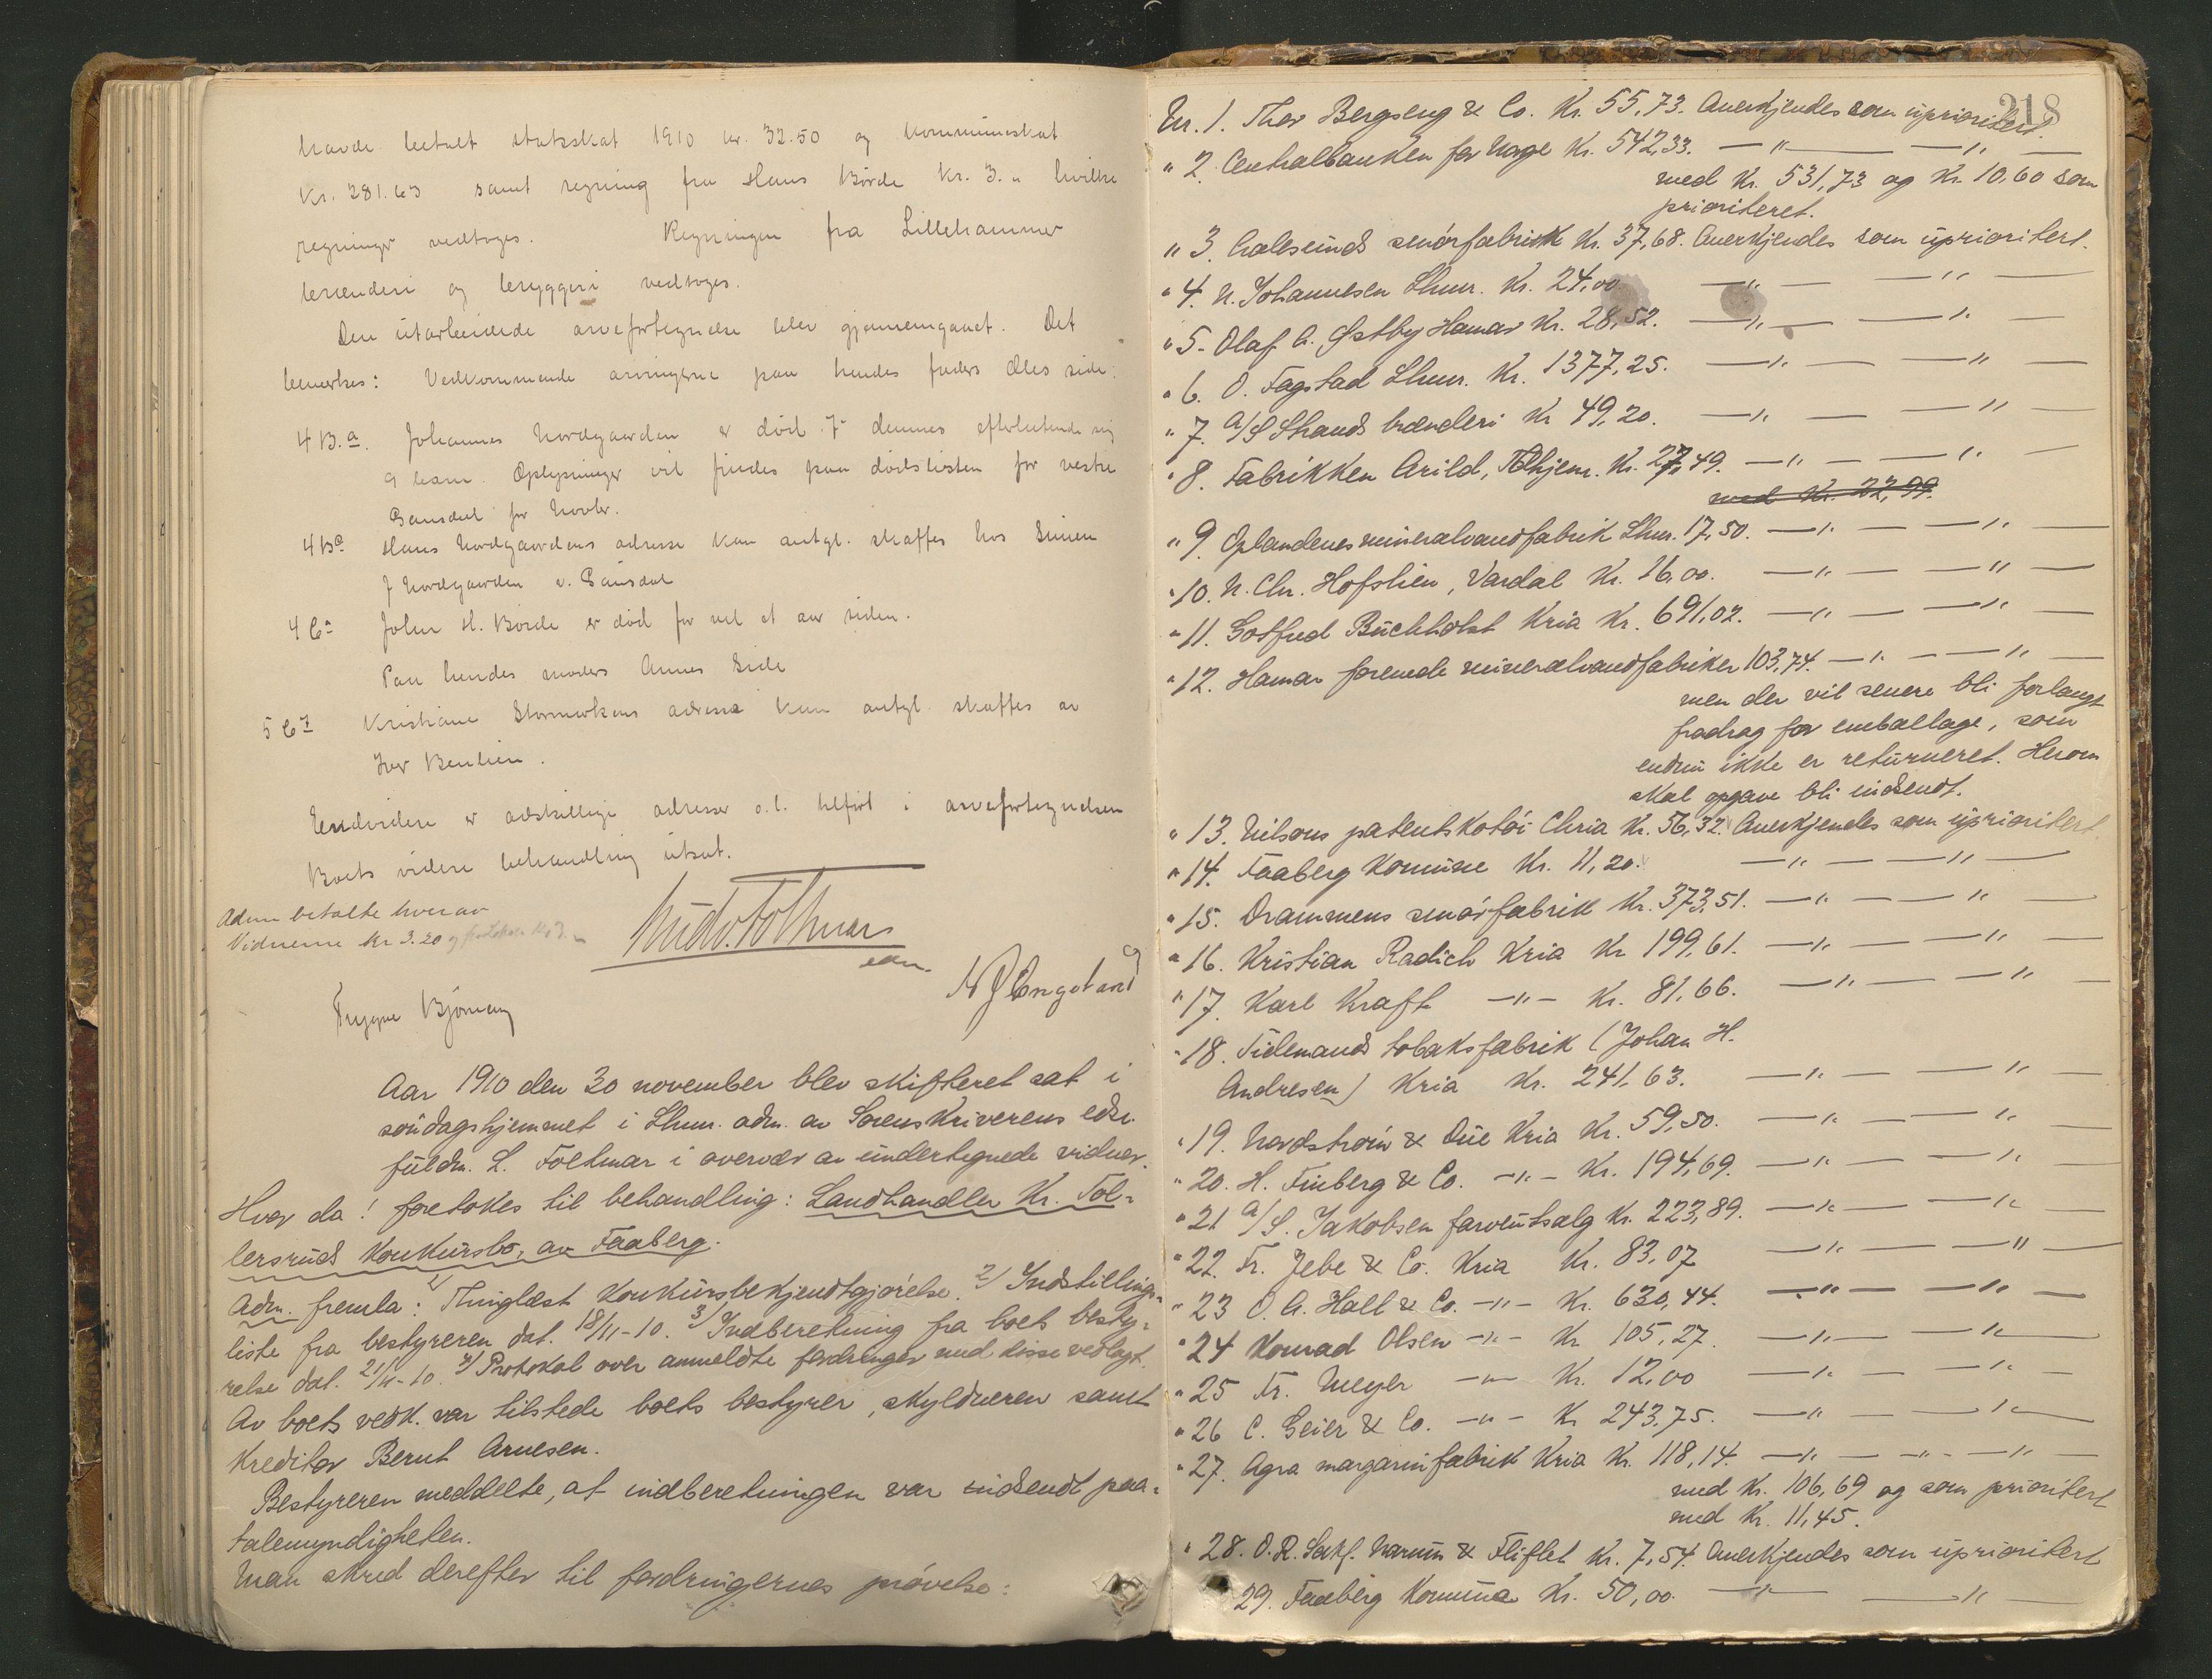 havde betalt statsskat 1910 kr. 32.50 og kommuneskat
Kr. 281.63 samt regning fra Hans Børde Kr. 3.„ hvilke
regninger vedtoges. Regningen fra Lillehammer
brænderi og bryggeri vedtoges.
Den utarbeidede arvefortegnelse blev gjennemgaaet. Det
bemerkes: Vedkommende arvingerne paa hendes faders side:
4 B.a. Johannes Nordgaarden er død. 7 dennes efterlatende sig
9 barn. Oplysninger vil findes paa dødslisten for vestre
Gausdal for Novbr.
4 B e Hans Nordgaardens adresse kan antgl. skaffes hos Simen
J Nordgaarden v. Gausdal
4 C a Johan H. Børde er død for ved et aar siden.
Paa hendes moders Annes Side
5 C 7 Kristiane adresse kan antgl. skaffes av
Iver Benlien.
Endvidere er adskillige adresser o.l. tilført i arvefortegnelsen
Boets videre behandling utsat.
Adm betalte hverav
Vidnerne Kr 3.20
edsv.
Trygve
Aar 1910 den 30 november blev skifteret sat i
søndagshjemmet i Lhmr. adm. av Sorenskriverens edsv.
fuldm. L. Foltmar i overvær av undertegnede vidner.
Hvor da! foretokes til behandling: Landhandler Kr. Tol-
lersruds Konkursbo, av Faaberg.
Adm. fremla: 1/ Thinglæst Konkursbekjendtgjørelse. 2/ Indstillings-
liste fra bestyreren dat. 18/11-10. 3/ Indberetning fra boets besty-
relse dat. 21/11-10. 4/ Protokol over anmeldte fordringer med disse vedlagt.
Av boets vedk. var tilstede boets bestyrer, skyldneren samt
Kreditor Bernt Arnesen.
Bestyreren meddelte, at indberetningen var indsendt paa-
talemyndigheten.
Man skred derefter til fordringernes prøvelse:
218
Nr. 1. Thor Bergseng & Co. Kr. 55,73. Anerkjendes som uprioritert.
„ 2. Centralbanken for Norge Kr. 542,33. —„— —„—
med Kr. 531,73 og Kr. 10,60 som
prioriteret.
„ 3. Aalesunds smørfabrikk Kr. 37,68. Anerkjendes som uprioritert.
„ 4. N. Johannesen Lhmr. Kr. 24,00 —„— —„—
„ 5. Olaf A. Østby Hamar Kr. 28,52. —„— —„—
„ 6. O. Fagstad Lhmr. Kr. 1377,25. —„— —„—
„ 7. A/S Strands brænderi Kr 49,20. —„— —„—
„ 8. Fabrikken Arild, Tdhjem. Kr. 27,49. —„— —„—
med Kr. 22,99.
„ 9. Oplandenes mineralvandfabrik Lhmr. 17,50. —„— —„—
„ 10. N. Chr. Hofslien, Vardal Kr. 16,00. —„— —„—
„ 11. Gotfred Buchholst Kria Kr. 691,02. —„— —„—
„ 12. Hamar forenede mineralvandfabriker 103,74. —„— —„—
men der vil senere bli forlangt
fradrag for emballage, som
endnu ikke er returneret. Herom
skal opgave bli indsendt.
„ 13. Nilsons patentskotøi Chria Kr. 56,32. Anerkjendes som uprioritert.
„ 14. Faaberg Komune Kr. 11,20. —„— —„—
„ 15. Drammens smørfabrik Kr. 373,51. —„— —„—
„ 16. Kristian Radich Kria Kr 199,61. —„— —„—
„ 17. Karl Kraft —„— Kr. 81,66. —„— —„—
„ 18. Tidemands tobaksfabrik (Johan H.
Andresen) Kria Kr. 241,63. —„— —„—
„ 19. Nordstrøm & Due Kria Kr. 59,50. —„— —„—
„ 20. H. Finberg & Co. —„— Kr. 194,69. —„— —„—
„ 21 A/S. Jakobsen farveutsalg Kr. 223,89. —„— —„—
„ 22. Fr. Jebe & Co. Kria Kr. 83,07 —„— —„—
„ 23 O. A. Hall & Co. —„— Kr. 630,44. —„— —„—
„ 24 Konrad Olsen —„— Kr 105,27. —„— —„—
„ 25 Fr. Meyer —„— Kr. 12,00 —„— —„—
„ 26 C. Geier & Co. —„— Kr 243,75. —„— —„—
„ 27. Agra margarinfabrik Kria Kr. 118,14. —„— —„— —„—
med Kr. 106,69 og som prioritert
med Kr. 11,45.
„ 28. O.R. Sakf. Narum & Fliflet Kr. 7,54. Anerkjendes som uprioritert
29. Faaberg Komune Kr. 50,00. —„— —„—